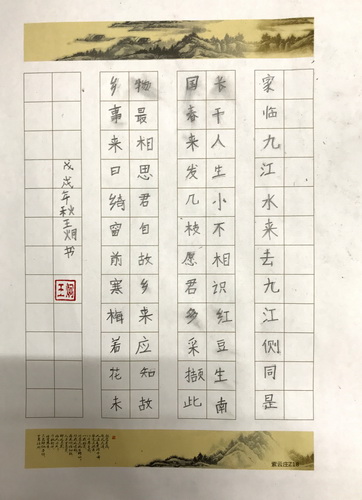 家临九江水来去九江侧同是
长干人生小不相识红豆生南
国春来发几枝愿君多采撷此
物最相思君自故乡来应知故
乡事来日绮窗前寒梅着花未
戊戌年秋王炯书
王炯